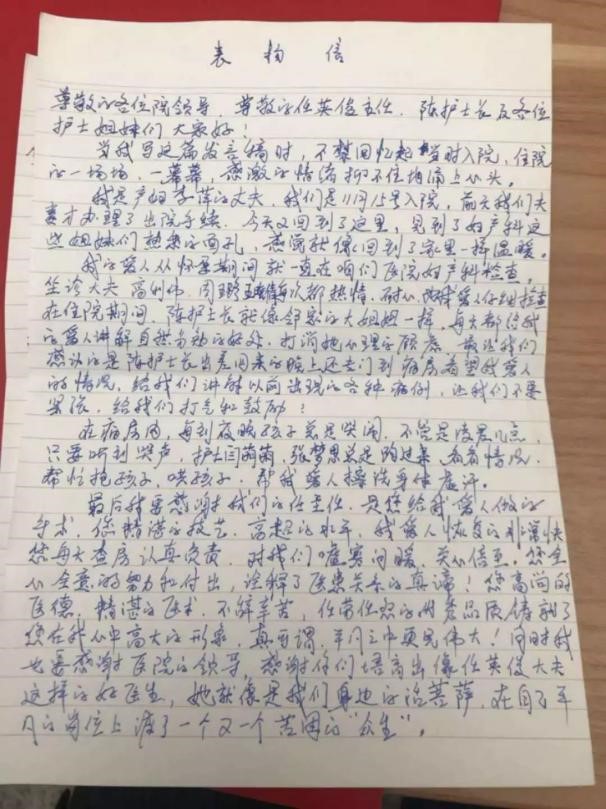 表扬信
尊敬的各位院领导、尊敬的任英俊主任、陈护士长及各位
护士姐妹们大家好!
当我写这篇发言稿时,不禁回忆起当时入院、住院
的一场场、一幕幕,感激的情绪抑不住地涌上心头。
我是产妇李萍的丈夫,我们是11月15号入院,前天我们夫
妻才办理了出院手续。今天又回到了这里,见到了妇产科这
些姐妹们熟悉的面孔,感觉就像回到了家里一样温暖。
我的爱人从怀孕期间就一直在咱们医院妇产科检查,
坐诊大夫 每次都热情、耐心、 我爱人仔细检查
在住院期间,陈护士长就像邻家的大姐姐一样,每天都给我
的爱人讲解自然分娩的好处,打消她心理的顾虑,最让我们
感动的是陈护士长出差回来的晚上还专门到病房看望我爱人
的情况,给我们讲解以前出现的各种病例,让我们不要
紧张,给我们打气和鼓励!
在病房内,每到夜晚孩子总是哭闹,不管是凌晨几点,
只要听到哭声,护士闫萌萌、张梦思总是跑过来,看看情况,
帮忙抱孩子、哄孩子,帮我爱人擦洗身体虚汗。
最后我要感谢我们的任主任,是您给我爱人做的
手术,您精湛的技艺、高超的水平,我爱人恢复的非常快
您每天查房认真负责,对我们嘘寒问暖、关心倍至。您全
心全意的努力和付出,诠释了医患关系的真谛!您高尚的
医德、精湛的医术、不辞辛苦、任劳任怨的优秀品质铸就了
您在我心中高大的形象,真可谓:平凡之中更见伟大!同时我
也要感谢医院的领导,感谢你们培育出像任英俊大夫
这样的好医生,她就像是我们身边的活菩萨,在自己平
凡的岗位上渡了一个又一个苦困的“众生”。